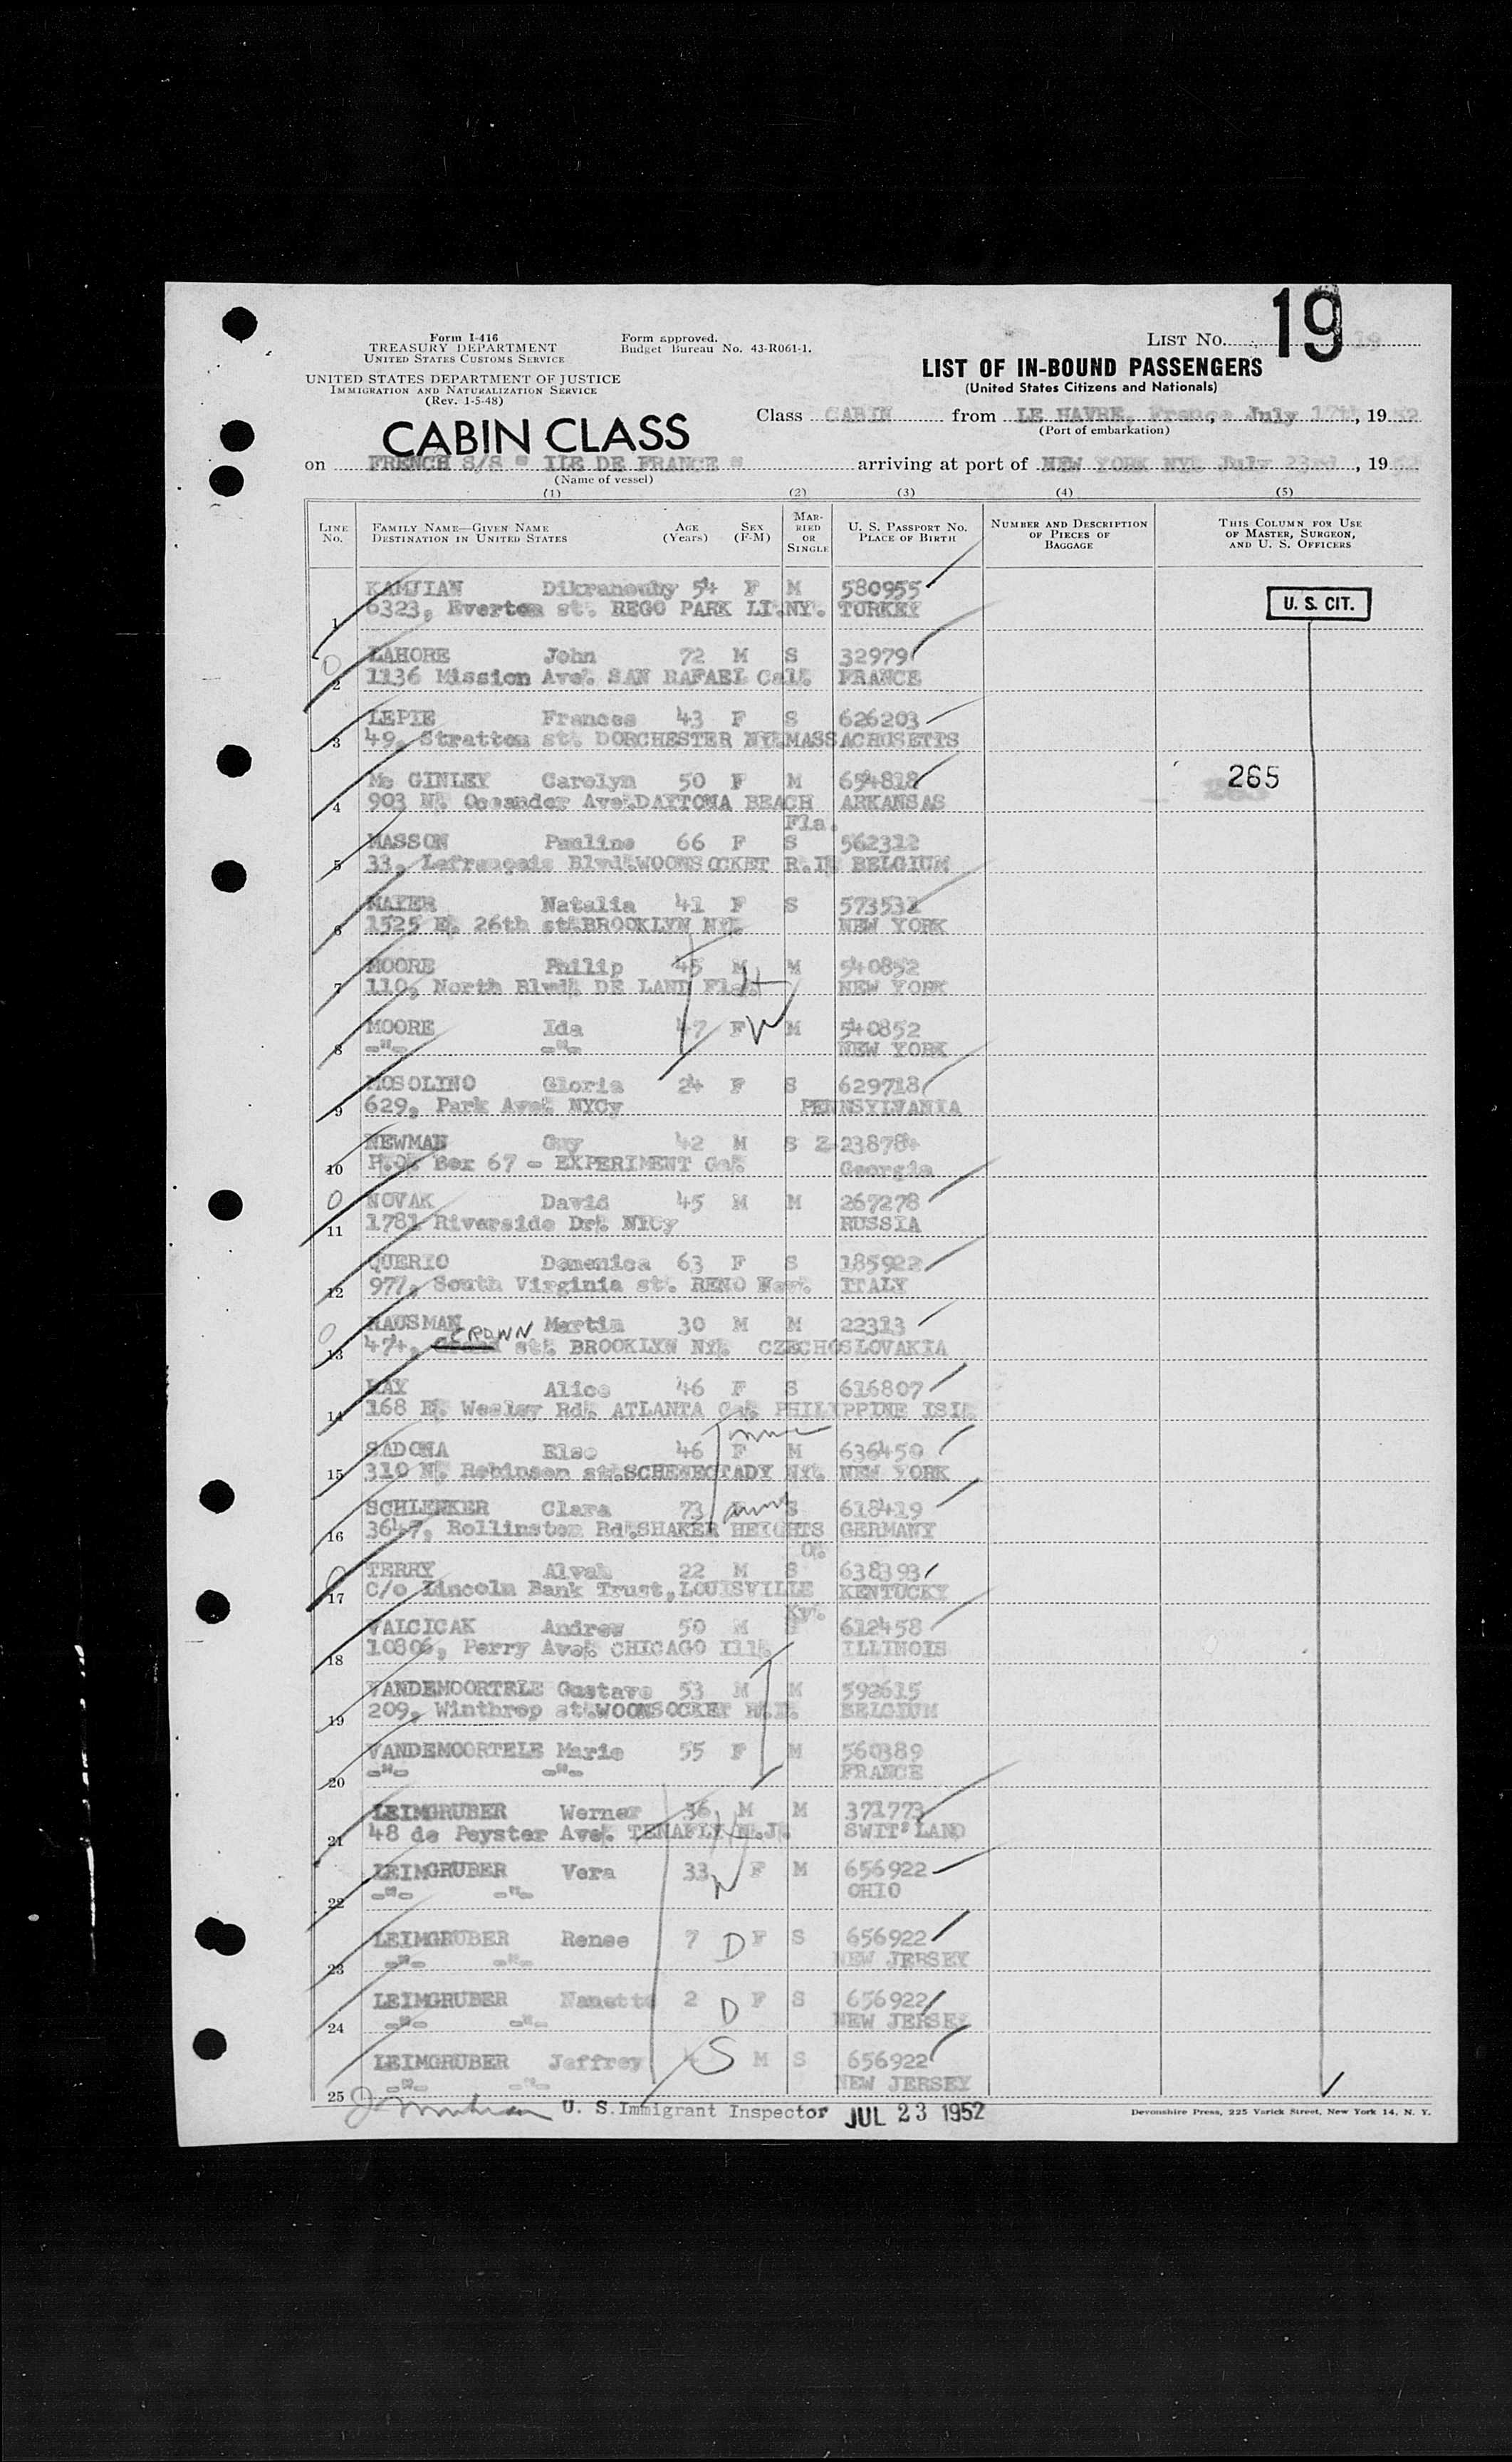 19
Form I-416
TREASURY DEPARTMENT
UNITED STATES CUSTOMS SERVICE
Form approved.
Budget Bureau No. 43-R061-1.
LIST NO. 19
UNITED STATES DEPARTMENT OF JUSTICE
IMMIGRATION AND NATURALIZATION SERVICE
(Rev. 1-5-48)
LIST OF IN-BOUND PASSENGERS
(United States Citizens and Nationals)
CABIN CLASS
Class CABIN from LE HAVRE, France, July 17th, 1952
(Port of embarkation)
on FRENCH S/S " ILE DE FRANCE " arriving at port of NEW YORK NY. July 23rd, 1952
(Name of vessel)
(1) (2) (3) (4) (5)
LINE NO. FAMILY NAME—GIVEN NAME DESTINATION IN UNITED STATES AGE (Years) SEX (F-M) MARRIED OR SINGLE U. S. PASSPORT NO. PLACE OF BIRTH NUMBER AND DESCRIPTION OF PIECES OF BAGGAGE THIS COLUMN FOR USE OF MASTER, SURGEON, AND U. S. OFFICERS
KAMJIAN Dikranouhy 54 F M 580955
U. S. CIT.
1 6323, Everton st. REGO PARK LI.NY. TURKEY
LAHORE John 72 M S 32979
2 1136 Mission Ave. SAN RAFAEL Cal. FRANCE
LEPIE Frances 43 F S 626203
3 49, Stratton st. DORCHESTER NY. MASSACHUSETTS
Mc GINLEY Carolyn 50 F M 654818
265
4 903 N. Oceander Ave. DAYTONA BEACH Fla. ARKANSAS
MASSON Pauline 66 F S 562312
5 33, Lefrançois Blvd. WOONSOCKET R.I. BELGIUM
MAYER Natalia 41 F S 573532
6 1525 E. 26th st. BROOKLYN NY. NEW YORK
MOORE Philip 45 M M 540852
7 110, North Blvd. DE LAND Fla. H NEW YORK
MOORE Ida 47 F W M 540852
8 -"- -"- NEW YORK
MOSOLINO Gloria 24 F S 629718
9 629, Park Ave. NYCy PENNSYLVANIA
NEWMAN Guy 42 M S Z-23878
10 P.O. Box 67 - EXPERIMENT Ga. Georgia
NOVAK David 45 M M 267278
11 1781 Riverside Dr. NYCy RUSSIA
QUERIO Domenica 63 F S 185922
12 977, South Virginia st. RENO Nev. ITALY
RAUSMAN Martin 30 M M 22313
13 474, CROWN st. BROOKLYN NY. CZECHOSLOVAKIA
RAY Alice 46 F S 616807
14 168 E. Wesley Rd. ATLANTA Ga. PHILIPPINE ISL.
SADOMA Else 46 F M 636459
15 310 N. Robinson st. SCHENECTADY NY. NEW YORK
SCHLENKER Clara 73 S 618419
16 3647, Rollinston Rd. SHAKER HEIGHTS O. GERMANY
TERRY Alvah 22 M S 638393
17 C/o Lincoln Bank Trust, LOUISVILLE Ky. KENTUCKY
VALCICAK Andrew 50 M S 612458
18 10806, Perry Ave. CHICAGO Ill. ILLINOIS
VANDEMOORTELE Gustave 53 M M 592615
19 209, Winthrop st. WOONSOCKET R.I. BELGIUM
VANDEMOORTELE Marie 55 F M 560389
20 -"- -"- FRANCE
LEIMGRUBER Werner 36 M M 371773
21 48 de Peyster Ave. TENAFLY N.J. H SWIT'LAND
LEIMGRUBER Vera 33 W F M 656922
22 -"- -"- OHIO
LEIMGRUBER Renee 7 D F S 656922
23 -"- -"- NEW JERSEY
LEIMGRUBER Nanette 2 D F S 656922
24 -"- -"- NEW JERSEY
LEIMGRUBER Jeffrey S M S 656922
25 -"- -"- NEW JERSEY
U. S. Immigrant Inspector JUL 23 1952
Devonshire Press, 225 Varick Street, New York 14, N. Y.